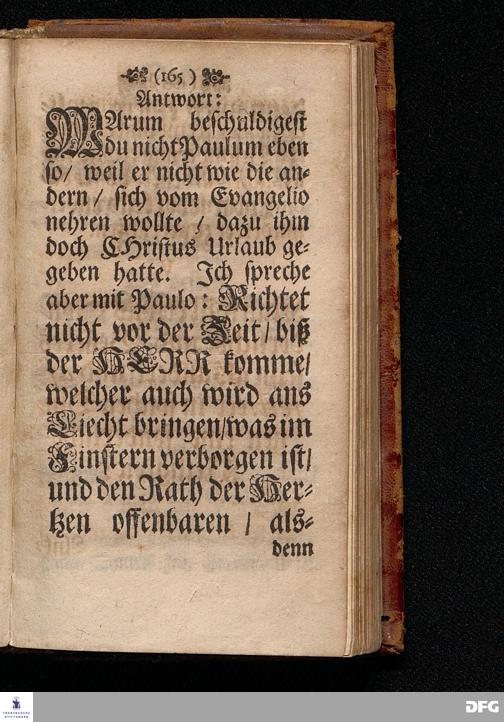 (165)
Antwort:
WArum beschuldigest
du nicht Paulum eben
so/ weil er nicht wie die an-
dern/ sich vom Evangelio
nehren wollte / dazu ihm
doch CHristus Urlaub ge-
geben hatte. Ich spreche
aber mit Paulo: Richtet
nicht vor der Zeit/ biß
der HERR komme/
welcher auch wird ans
Liecht bringen/was im
Finstern verborgen ist/
und den Rath der Her-
tzen offenbaren / als-
denn
FRANCKESCHE
STIFTUNGEN
DFG